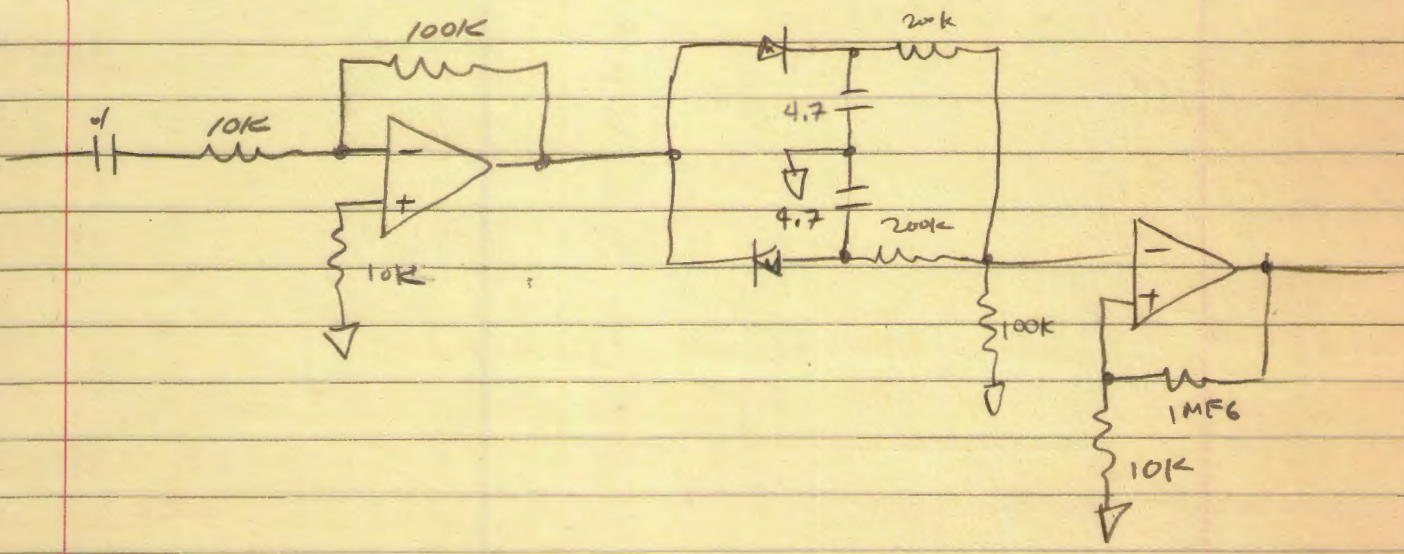 100K
200K
.1
10K
4.7
-
+
4.7
200K
10K
-
+
100K
1MEG
10K